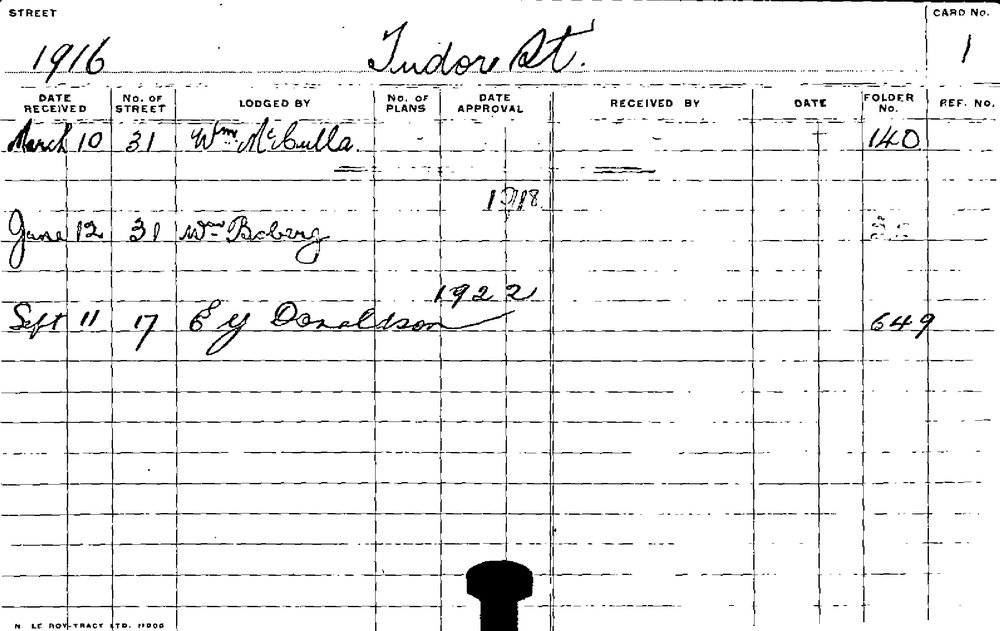 STREET CARD No.
1916 Tudor St. 1
DATE RECEIVED No. OF STREET LODGED BY No. OF PLANS DATE APPROVAL RECEIVED BY DATE FOLDER No. REF. No.
March 10 31 Wm. McCulla 140
1918
June 12 31 Wm Boberg
1922
Sept 11 17 E Y Donaldson 649
N. LE ROY-TRACY LTD.